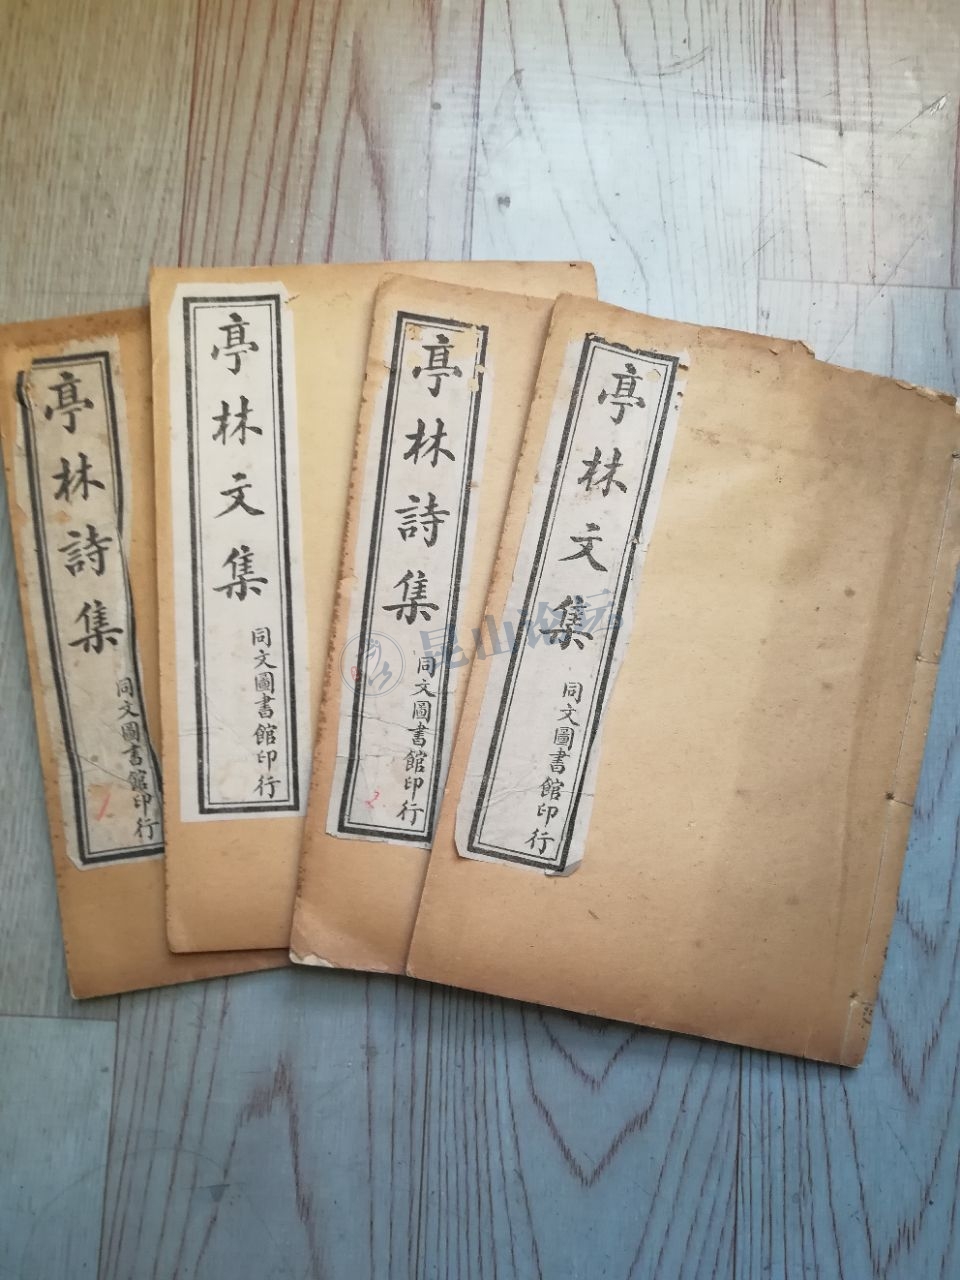 亭林詩集
同文圖書館印行
1.
亭林文集
同文圖書館印行
亭林詩集
同文圖書館印行
2.
亭林文集
同文圖書館印行
昆山